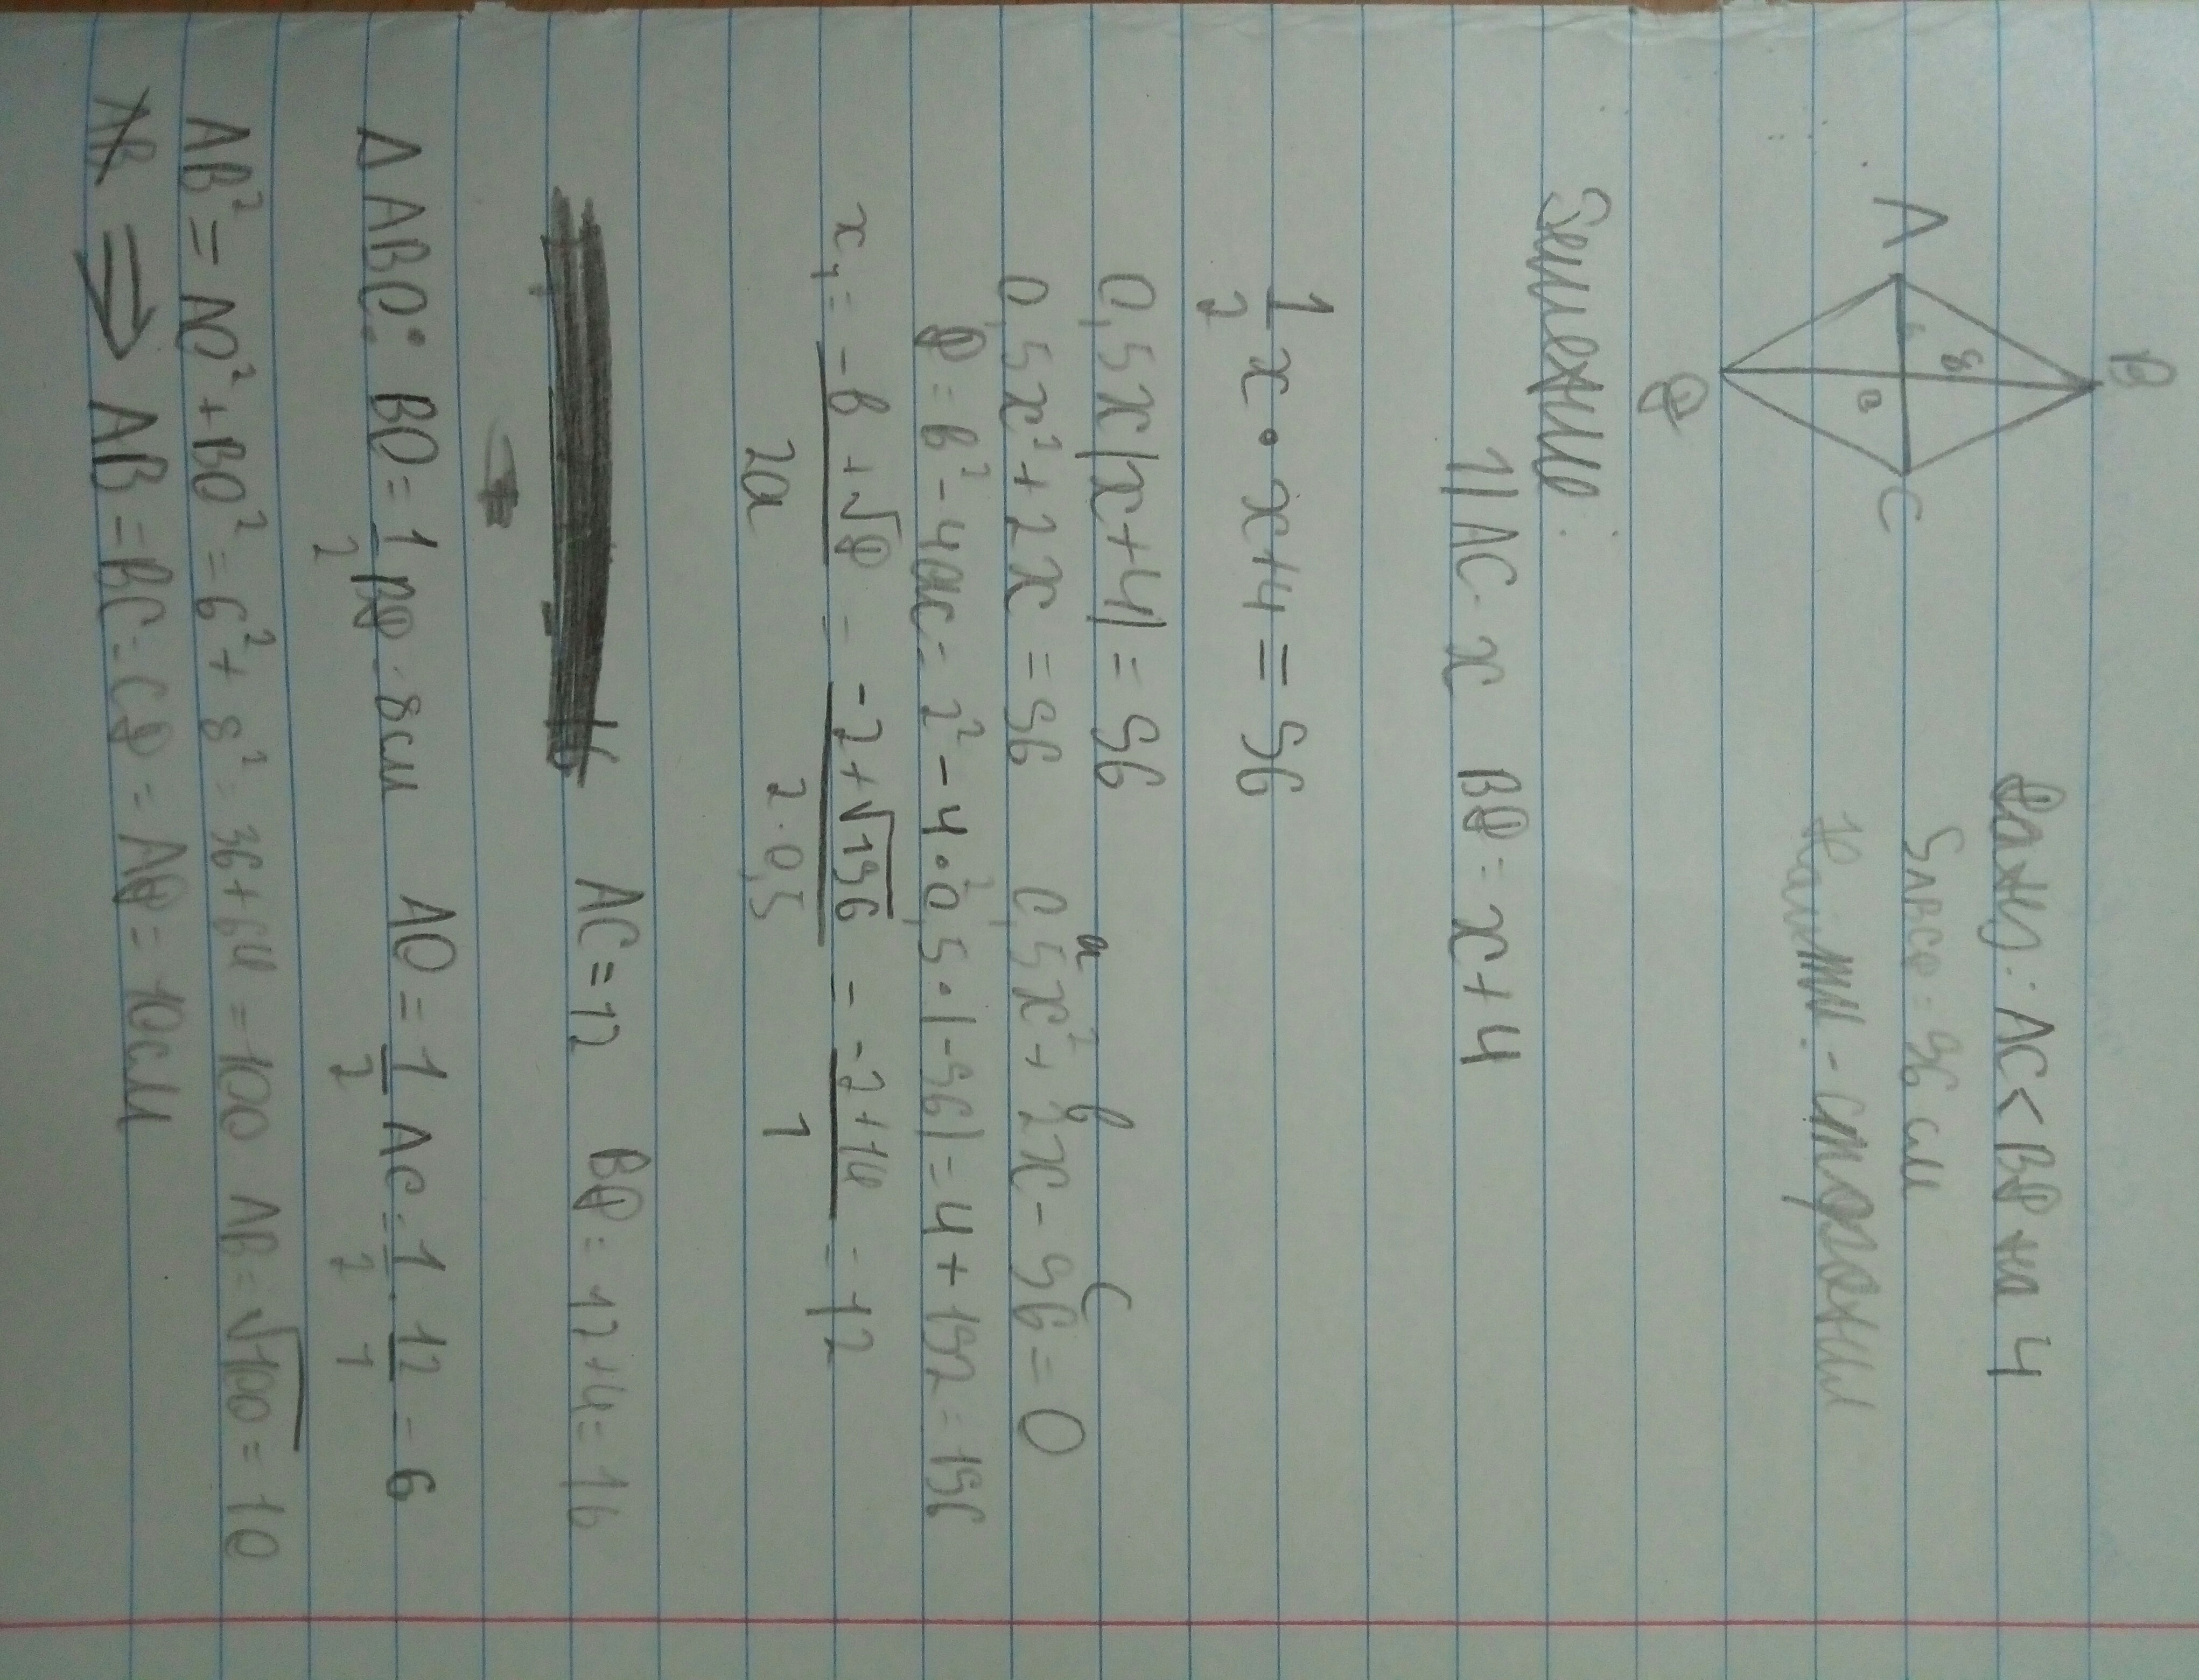 B
A
C
D
8
6
O
Дано: AC < BD на 4
SABCD = 96 см
Найти: - стороны
Решение:
1) AC = x BD = x+4
1/2 x · x+4 = 96
0,5x(x+4) = 96
a b c
0,5x²+2x = 96 0,5x²+2x-96=0
D = b²-4ac = 2²-4·0,5·(-96) = 4+192 = 196
x₁ = -b+√D/2a = -2+√196/2·0,5 = -2+14/1 = 12
AC=12 BD = 12+4=16
Δ ABO: BO = 1/2 BD = 8см AO = 1/2 AC = 1/2 · 12/1 = 6
AB² = AO²+BO² = 6²+8² = 36+64 = 100 AB = √100 = 10
⇒ AB = BC = CD = AD = 10см